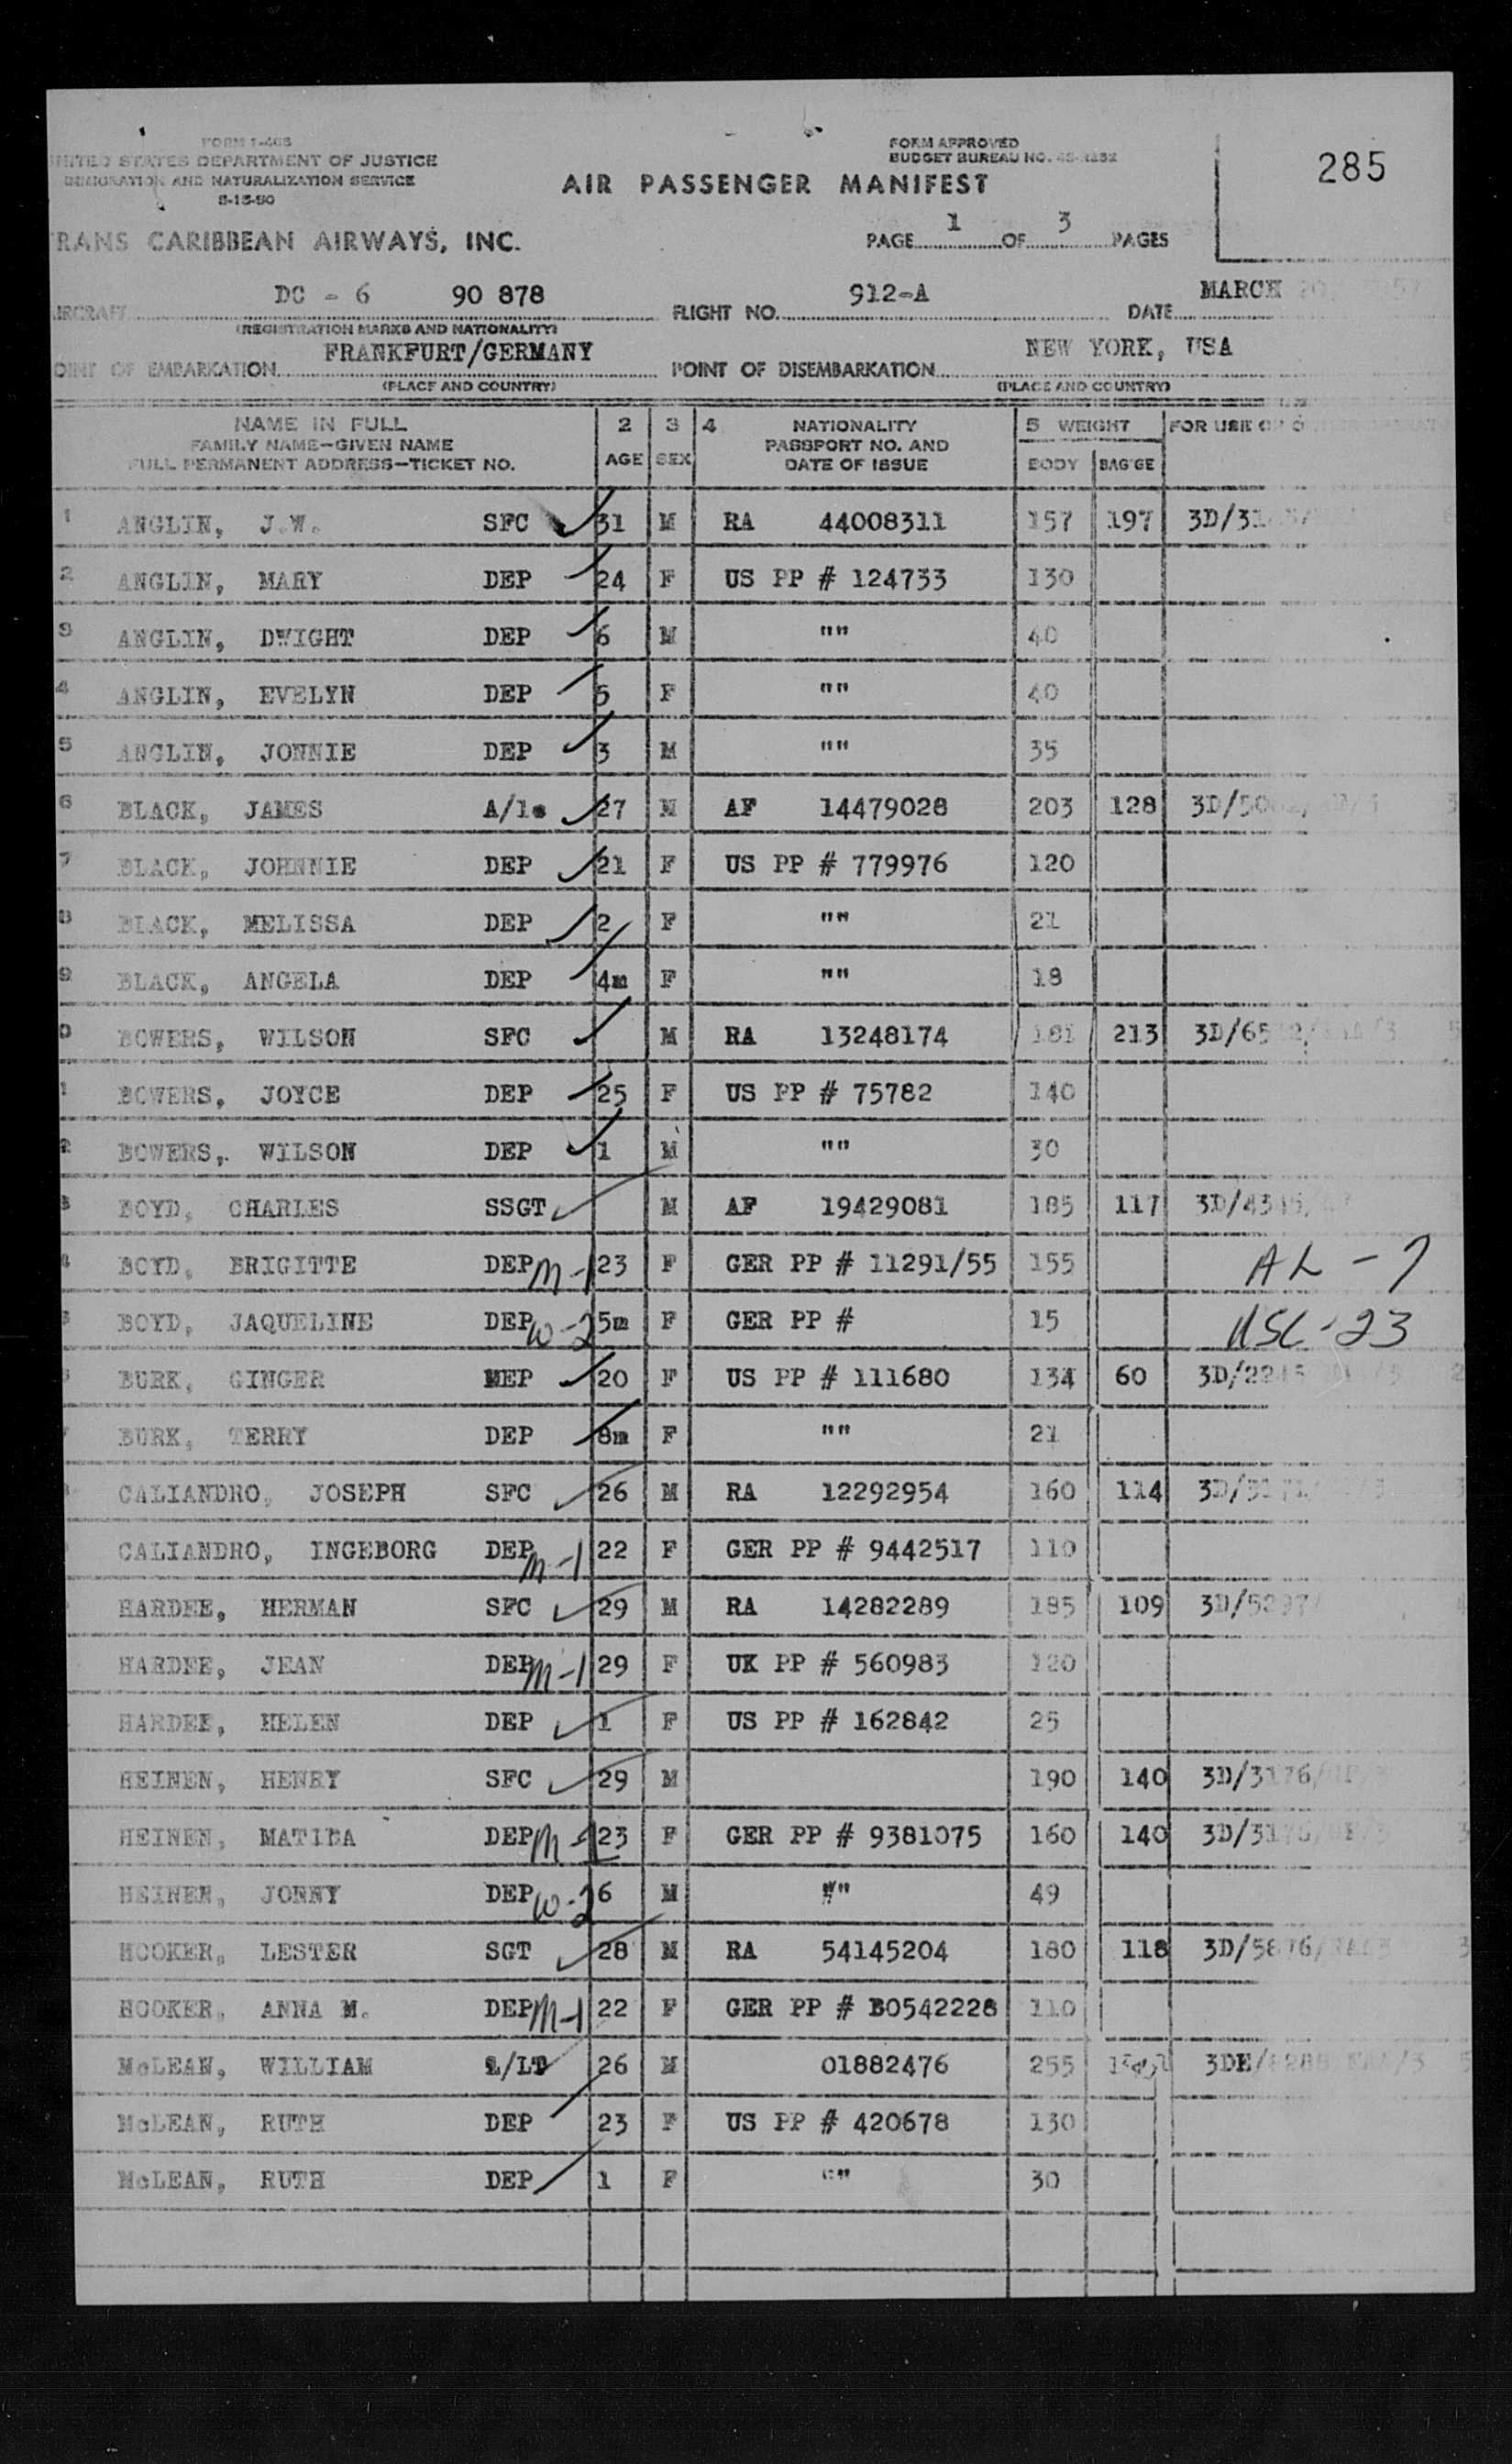 FORM I-466
UNITED STATES DEPARTMENT OF JUSTICE
IMMIGRATION AND NATURALIZATION SERVICE
FORM APPROVED
BUDGET BUREAU NO.
285
AIR PASSENGER MANIFEST
PAGE 1 OF 3 PAGES
RANS CARIBBEAN AIRWAYS, INC.
AIRCRAFT DC - 6 90 878 FLIGHT NO. 912-A DATE MARCH
(REGISTRATION MARKS AND NATIONALITY)
POINT OF EMBARKATION FRANKFURT/GERMANY POINT OF DISEMBARKATION NEW YORK, USA
(PLACE AND COUNTRY) (PLACE AND COUNTRY)
NAME IN FULL 2 3 4 NATIONALITY 5 WEIGHT FOR USE OF
FAMILY NAME-GIVEN NAME PASSPORT NO. AND
FULL PERMANENT ADDRESS-TICKET NO. AGE SEX DATE OF ISSUE BODY BAG'GE
1 ANGLIN, J.W. SFC 31 M RA 44008311 157 197
2 ANGLIN, MARY DEP 24 F US PP # 124733 130
3 ANGLIN, DWIGHT DEP 6 M "" 40
4 ANGLIN, EVELYN DEP 5 F "" 40
5 ANGLIN, JONNIE DEP 3 M "" 35
6 BLACK, JAMES 27 M AF 14479028 203 128
7 BLACK, JOHNNIE DEP 21 F US PP # 779976 120
8 BLACK, MELISSA DEP 2 F "" 21
9 BLACK, ANGELA DEP 4m F "" 18
0 BOWERS, WILSON SFC M RA 13248174 181 213
1 BOWERS, JOYCE DEP 25 F US PP # 75782 140
2 BOWERS, WILSON DEP 1 M "" 30
3 BOYD, CHARLES SSGT M AF 19429081 185 117
4 BOYD, BRIGITTE DEP M-1 23 F GER PP # 11291/55 155 AL - 7
BOYD, JAQUELINE DEP W-2 5m F GER PP # 15 USC-23
BURK, GINGER MEP 20 F US PP # 111680 134 60
BURK, TERRY DEP 8m F "" 21
CALIANDRO, JOSEPH SFC 26 M RA 12292954 160 114
CALIANDRO, INGEBORG DEP M-1 22 F GER PP # 9442517 110
HARDEE, HERMAN SFC 29 M RA 14282289 185 109
HARDEE, JEAN DEP M-1 29 F UK PP # 560983 120
HARDEE, HELEN DEP 1 F US PP # 162842 25
HEINEN, HENRY SFC 29 M 190 140 3D/3176
HEINEN, MATIDA DEP M-1 23 F GER PP # 9381075 160 140 3D/3176
HEINEN, JONNY DEP W-2 6 M "" 49
HOOKER, LESTER SGT 28 M RA 54145204 180 118
HOOKER, ANNA M. DEP M-1 22 F GER PP # B0542228 110
McLEAN, WILLIAM 26 M 01882476 255
McLEAN, RUTH DEP 23 F US PP # 420678 130
McLEAN, RUTH DEP 1 F "" 30